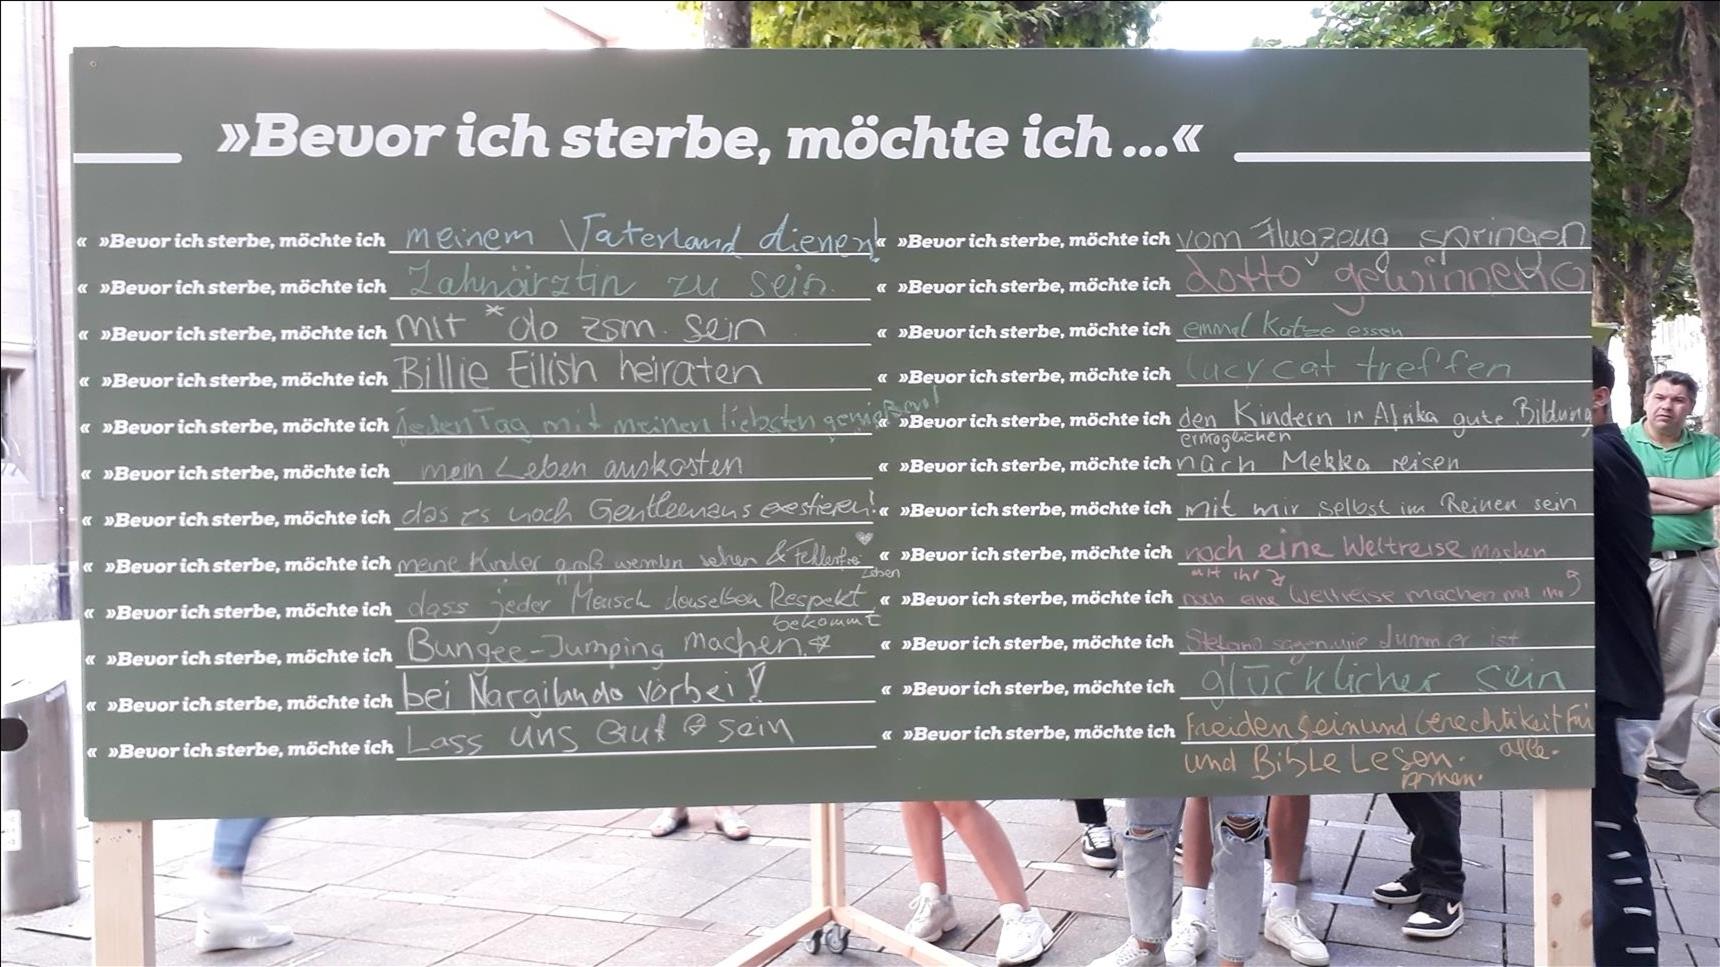 »Bevor ich sterbe, möchte ich ...«
« »Bevor ich sterbe, möchte ich meinem Vaterland dienen!
« »Bevor ich sterbe, möchte ich Zahnärztin zu sein.
« »Bevor ich sterbe, möchte ich mit *do zsm. sein
« »Bevor ich sterbe, möchte ich Billie Eilish heiraten
« »Bevor ich sterbe, möchte ich jeden Tag mit meinen liebsten genießen!
« »Bevor ich sterbe, möchte ich mein Leben auskosten
« »Bevor ich sterbe, möchte ich das es noch Gentleemans exestieren!
« »Bevor ich sterbe, möchte ich meine Kinder groß werden sehen & Fehlerfrei
Leben
« »Bevor ich sterbe, möchte ich dass jeder Mensch denselben Respekt
bekommt
« »Bevor ich sterbe, möchte ich Bungee-Jumping machen.
« »Bevor ich sterbe, möchte ich bei Nargilando vorbei!
« »Bevor ich sterbe, möchte ich Lass uns Gut sein
« »Bevor ich sterbe, möchte ich vom Flugzeug springen
« »Bevor ich sterbe, möchte ich gewinnen
« »Bevor ich sterbe, möchte ich emmal Katze essen
« »Bevor ich sterbe, möchte ich lucy cat treffen
« »Bevor ich sterbe, möchte ich den Kindern in Afrika gute Bildung
ermöglichen
« »Bevor ich sterbe, möchte ich nach Mekka reisen
« »Bevor ich sterbe, möchte ich mit mir selbst im Reinen sein
« »Bevor ich sterbe, möchte ich noch eine Weltreise machen
mit ihr
« »Bevor ich sterbe, möchte ich noch eine Weltreise machen mit ihr
« »Bevor ich sterbe, möchte ich Stefano sagen wie dumm er ist
« »Bevor ich sterbe, möchte ich glücklicher sein
« »Bevor ich sterbe, möchte ich Freiden sein und Gerechtikeit Für
alle.
und Bible Lesen.